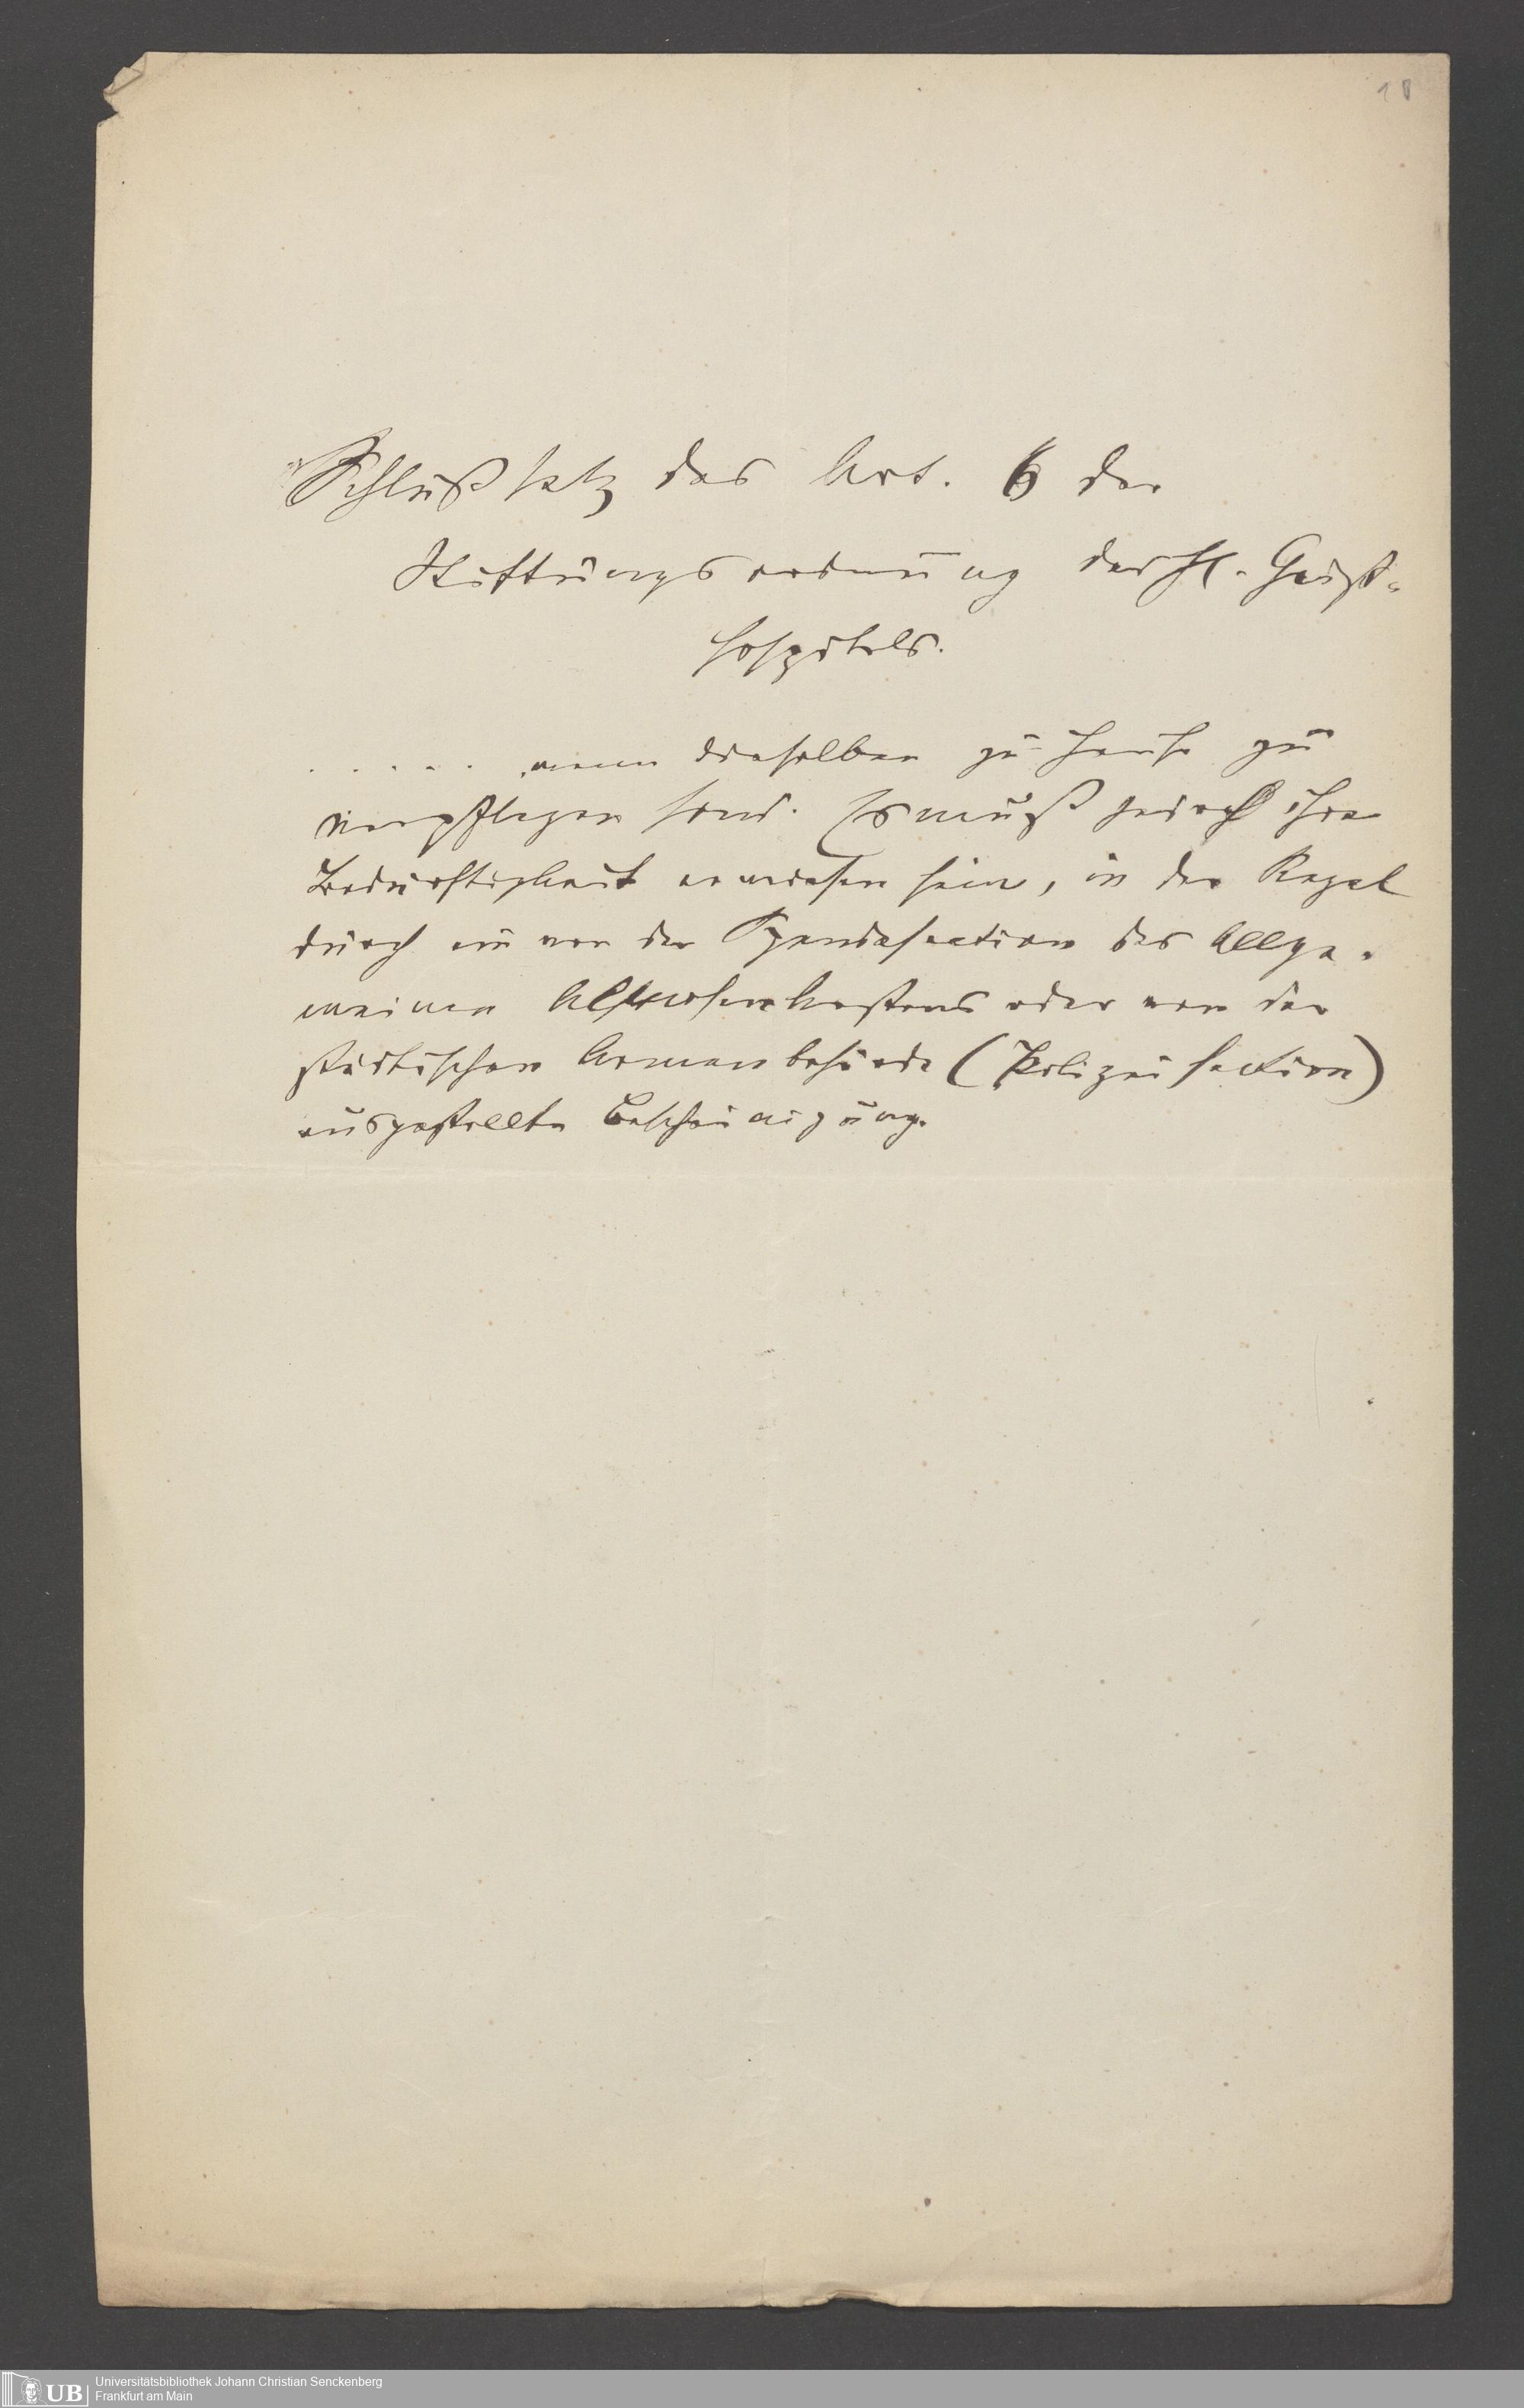 18
Schlußsatz des Art. 6 der
Stiftungsordnung des Hl. Geist-
hospitals.
. . . . . wenn dieselben zu Hause zu
verpflegen sind. Es muß jedoch ihre
Bedürftigkeit erwiesen sein, in der Regel
durch ein von der Spendesection des Allge-
meinen Almosenkastens oder von der
städtischen Armenbehörde (Polizeisection)
ausgestellte Bescheinigung.
UB
Universitätsbibliothek Johann Christian Senckenberg
Frankfurt am Main